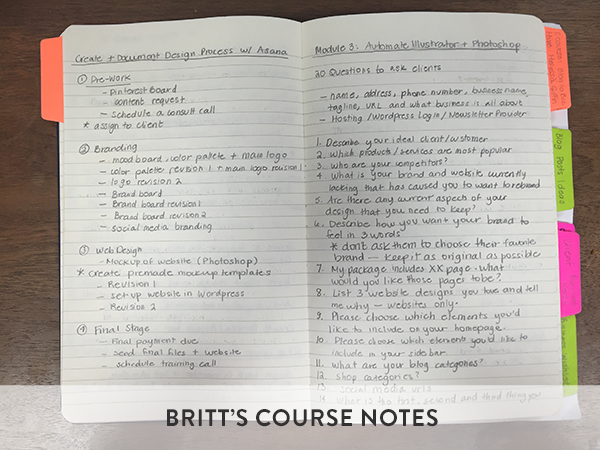 Create + Document Design Process w/ Asana
① Pre-Work
– Pinterest Board
– Content request
– schedule a consult call
* assign to client
② Branding
– mood board, color pallete + main logo
– color pallete revision 1 + main logo revision 1
– logo revision 2
– Brand board
– Brand board revision 1
– Brand board revision 2
– social media branding
③ Web Design
– Mockup of website (Photoshop)
* create premade mockup templates
– Revision 1
– set up website in Wordpress
– Revision 2
④ Final Stage
– Final payment due
– send final files + website
– schedule training call
Module 3: Automate Illustrator + Photoshop
20 Questions to ask clients
– name, address, phone number, business name,
tagline, URL and what business is all about
– Hosting / Wordpress Login / Newsletter Provider
1. Describe your ideal client/customer
2. Which products/services are most popular
3. Who are your competitors?
4. What is your brand and website currently
lacking that has caused you to want to rebrand
5. Are there any current aspects of your
design that you need to keep?
6. Describe how you want your brand to
feel in 3 words
* dont ask them to choose their favorite
brand — keep it as original as possible
7. My package includes XX page. What
would you like those pages to be?
8. List 3 website designs you love and tell
me why – websites only.
9. Please choose which elements you'd
like to include on your homepage.
10. Please choose which elements you'd like to
include in your sidebar
11. What are your blog categories?
12. shop categories?
13. social media urls
14. What is the first, second and third thing you
Blog Posts Ideas
BRITT'S COURSE NOTES